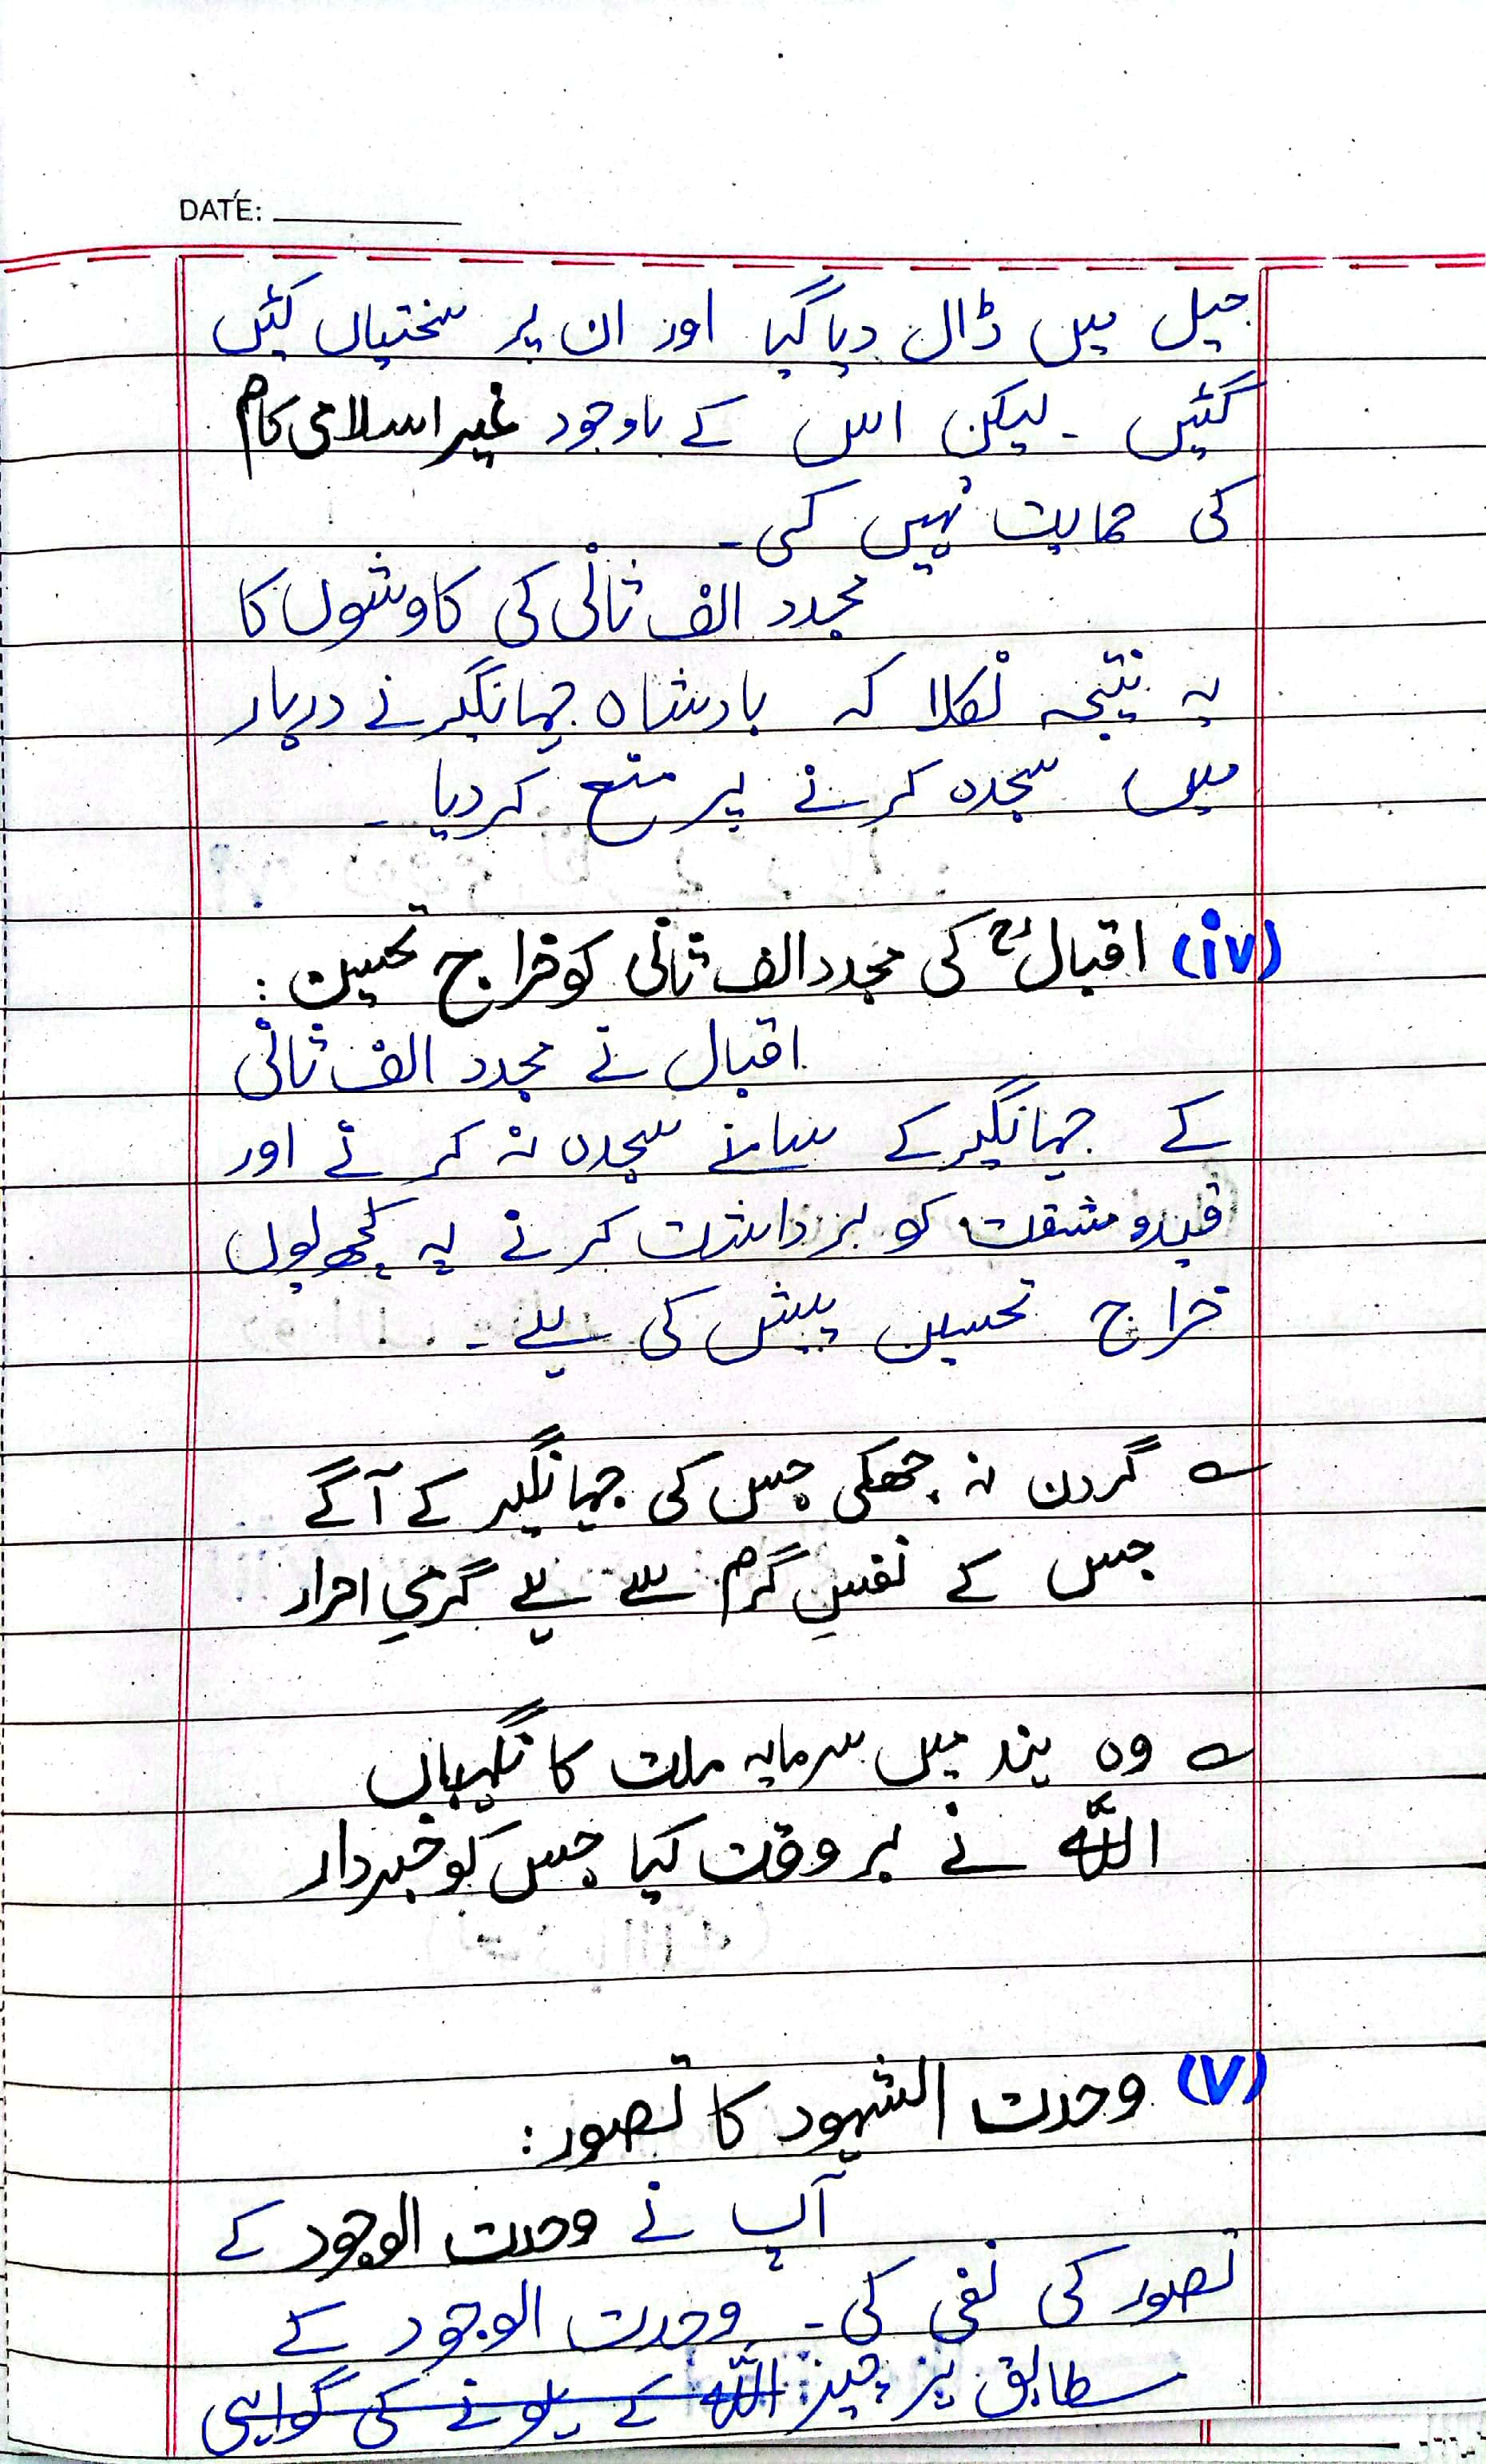 DATE:
جیل میں ڈال دیا گیا اور ان پر سختیاں کئیں
گئیں ۔ لیکن اس کے باوجود غیر اسلامی کام
کی حمایت نہیں کی۔
مجدد الف ثانی کی کاوشوں کا
یہ نتیجہ نکلا کہ بادشاہ جہانگیر نے دربار
میں سجدہ کرنے پر منع کر دیا ۔
(iv) اقبالؒ کی مجدد الف ثانی کو خراج تحسین :
اقبال نے مجدد الف ثانی
کے جہانگیر کے سامنے سجدہ نہ کرنے اور
قیدو مشقت کو برداشت کرنے پہ کچھ یوں
خراج تحسین پیش کی ہے ۔
؎ گردن نہ جھکی جس کی جہانگیر کے آگے
جس کے نفسِ گرم سے ہے گرمیِ احرار
؎ وہ ہند میں سرمایہ ملت کا نگہباں
اللّٰہ نے بر وقت کیا جس کو خبردار
(v) وحدت الشہود کا تصور :
آپ نے وحدت الوجود کے
تصور کی نفی کی ۔ وحدت الوجود کے
مطابق ہر چیز اللّٰہ کے ہونے کی گواہی